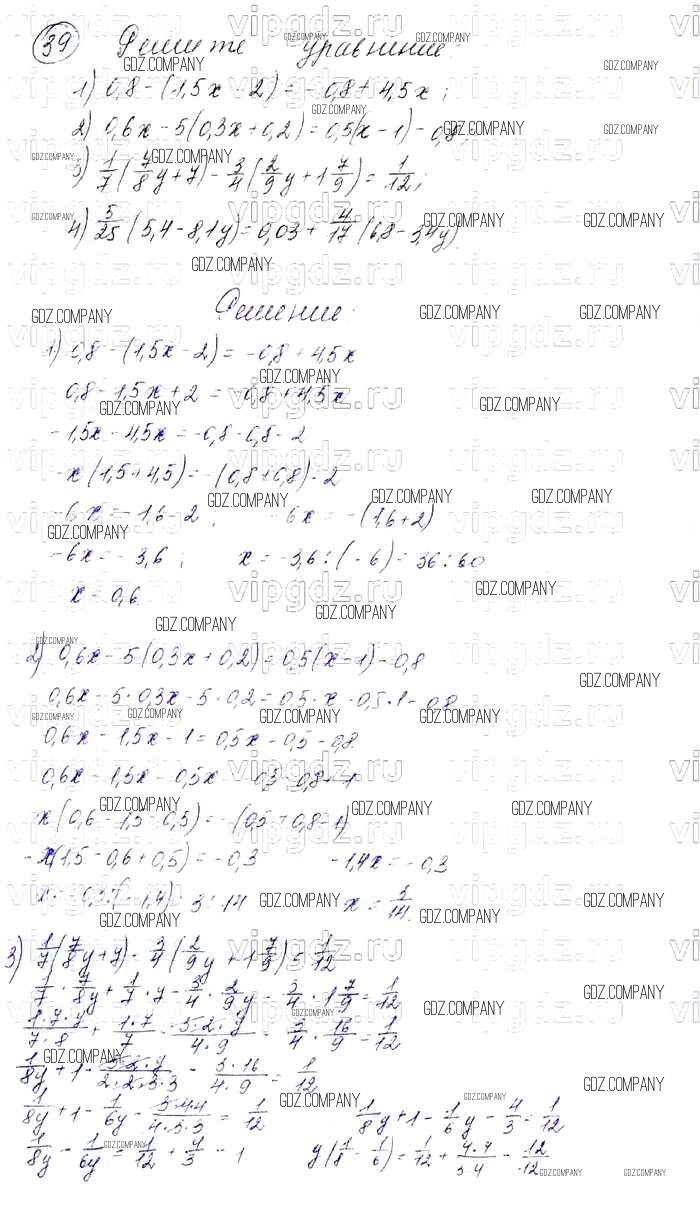 39 Решите уравнение:
1) 0,8 - (1,5x - 2) = - 0,8 + 4,5x ;
2) 0,6x - 5(0,3x + 0,2) = 0,5(x - 1) - 0,8;
3) 1/7 (7/8 y + 7) - 3/4 (2/9 y + 1 7/9) = 1/12;
4) 5/25 (5,4 - 8,1y) = 0,03 + 4/17 (6,8 - 3,4y)
Решение:
1) 0,8 - (1,5x - 2) = - 0,8 + 4,5x
0,8 - 1,5x + 2 = - 0,8 + 4,5x
- 1,5x - 4,5x = - 0,8 - 0,8 - 2
- x (1,5 + 4,5) = - (0,8 + 0,8) - 2
- 6x = - 1,6 - 2 ; - 6x = - (1,6 + 2)
- 6x = - 3,6 ; x = - 3,6 : (- 6) = 36 : 60
x = 0,6
2) 0,6x - 5(0,3x + 0,2) = 0,5(x - 1) - 0,8
0,6x - 5 · 0,3x - 5 · 0,2 = 0,5 · x - 0,5 · 1 - 0,8
0,6x - 1,5x - 1 = 0,5x - 0,5 - 0,8
0,6x - 1,5x - 0,5x = - 0,5 - 0,8 + 1
x (0,6 - 1,5 - 0,5) = - (0,5 + 0,8 - 1)
- x(1,5 - 0,6 + 0,5) = - 0,3 - 1,4x = - 0,3
x = - 0,3 : (- 1,4) = 3 : 14 x = 3/14.
3) 1/7 (7/8 y + 7) - 3/4 (2/9 y + 1 7/9) = 1/12
1/7 · 7/8y + 1/7 · 7 - 3/4 · 2/9y - 3/4 · 1 7/9 = 1/12
1·7·y/7·8 + 1·7/7 - 3·2·y/4·9 - 3/4 · 16/9 = 1/12
1/8y + 1 - 3·2·y/2·2·3·3 - 3·16/4·9 = 1/12
1/8y + 1 - 1/6y - 3·4·4/4·3·3 = 1/12 1/8y + 1 - 1/6 y - 4/3 = 1/12
1/8y - 1/6y = 1/12 + 4/3 - 1 y (1/8 - 1/6) = 1/12 + 4·4/3·4 - 12/12